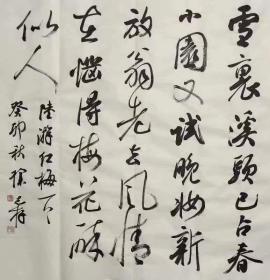 雪裏溪頭已占春
小園又試晚妝新
放翁老去風情
在惱得梅花醉
似人
陸游紅梅一首
癸卯秋